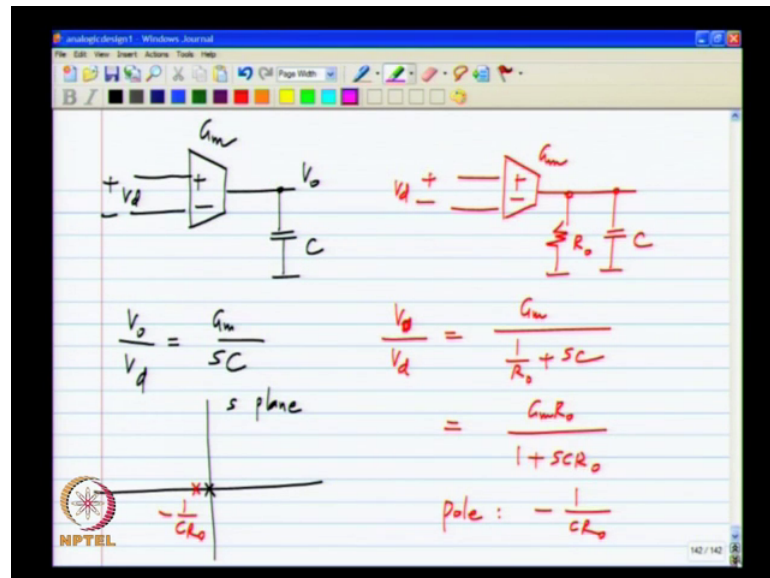 analogicdesign1 - Windows Journal
File Edit View Insert Actions Tools Help
Page Width
B I
Gm
+ Vd -
+ -
Vo
C
Vo / Vd = Gm / SC
s plane
- 1 / CRo
Gm
Vd + -
+ -
Ro
C
Vo / Vd = Gm / (1 / Ro + SC)
= GmRo / 1 + SCRo
pole : - 1 / CRo
NPTEL
142 / 142